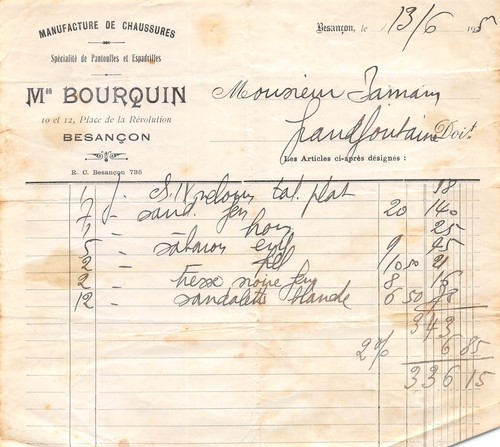 MANUFACTURE DE CHAUSSURES
Spécialité de Pantoufles et Espadrilles
Mon BOURQUIN
10 et 12, Place de la Révolution
BESANÇON
R. C. Besançon 735
Besançon, le 13/6 19
Monsieur Jamam
Grandfontaine Doit
Les Articles ci-après désignés :
1 p. velours tal. plat 18
7 - sand. fem 20 140
1 - hom 25
5 - enf 9 45
2 - fill 10 50 21
2 - tresse noire fem 8 16
12 - sandalette blanche 6 50 78
343
2% 6 85
336 15